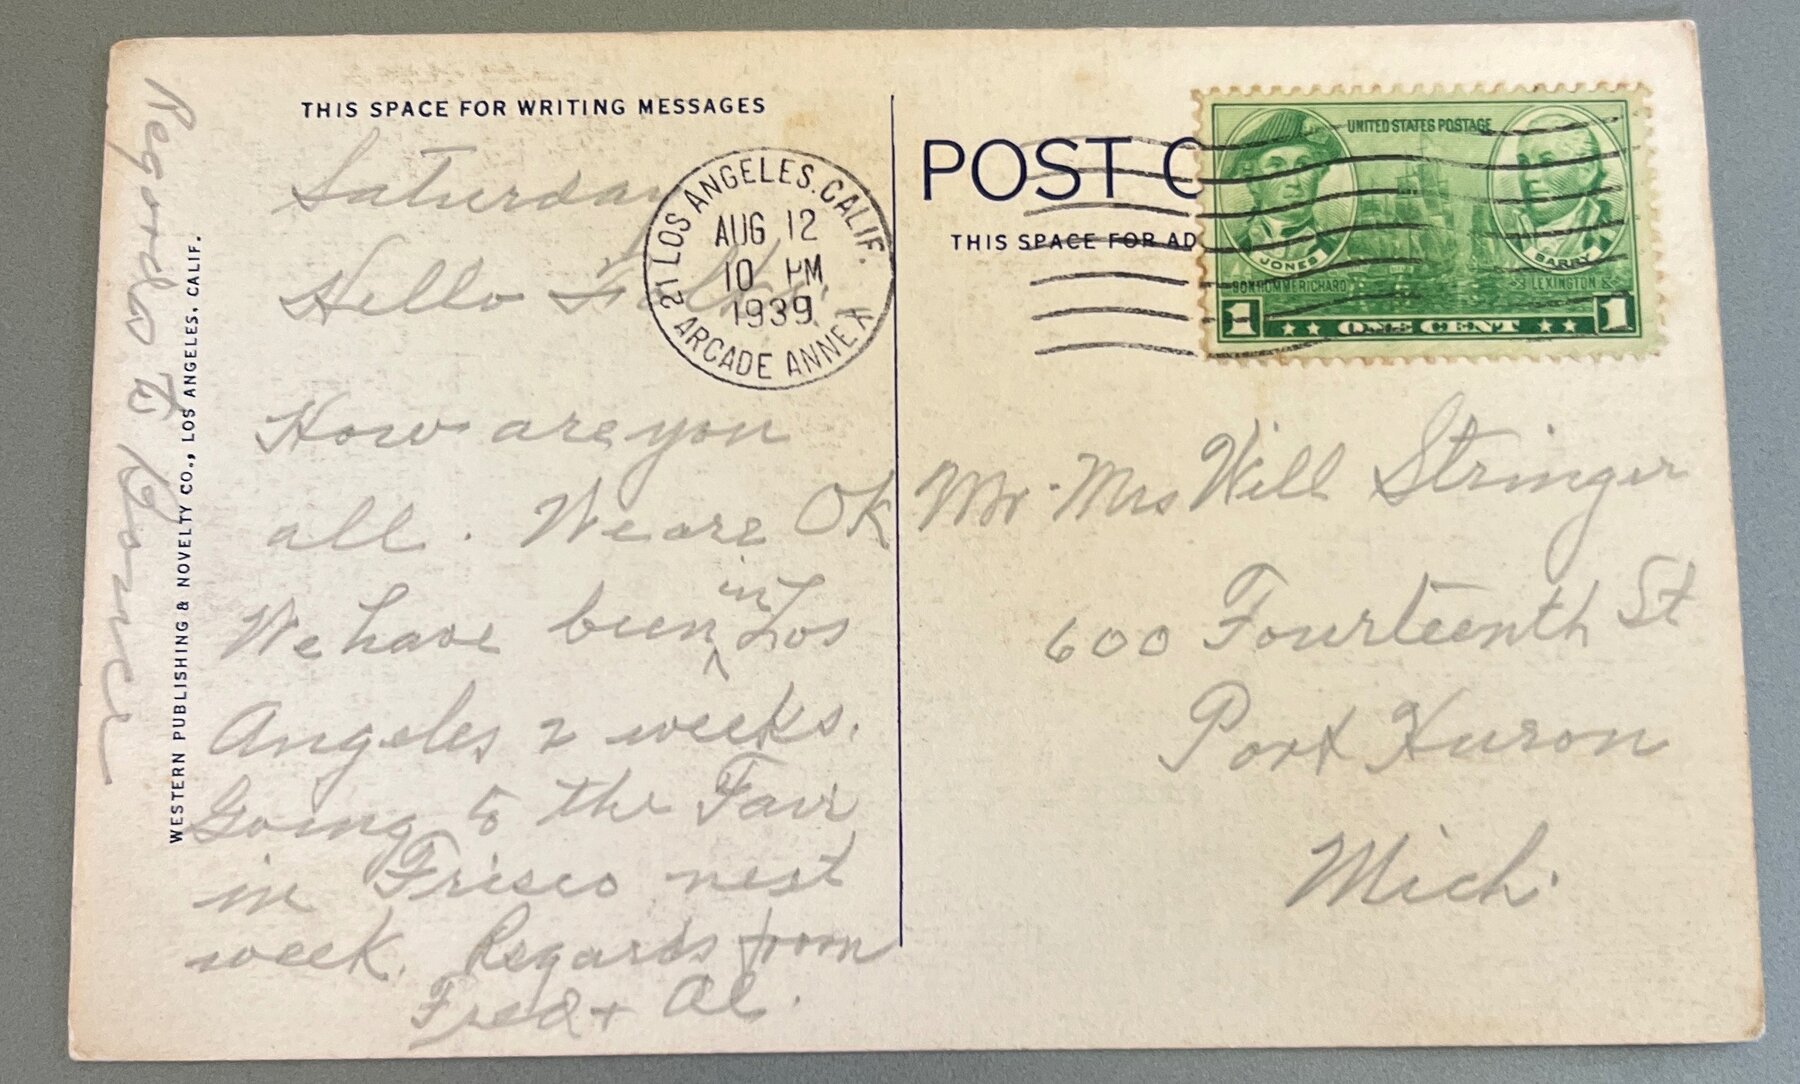 THIS SPACE FOR WRITING MESSAGES
Saturday
Hello Folks
How are you
all. We are OK
We have been in Los
Angeles 2 weeks.
Going to the Fair
in Frisco next
week. Regards from
Fred + Al.
Regards to
WESTERN PUBLISHING & NOVELTY CO., LOS ANGELES, CALIF.
21 LOS ANGELES, CALIF.
AUG 12
10 PM
1939
ARCADE ANNEX
POST C
THIS SPACE FOR AD
UNITED STATES POSTAGE
JONES
BARRY
BONHOMME RICHARD
LEXINGTON &
1 ONE CENT 1
Mr. Mrs Will Stringer
600 Fourteenth St
Port Huron
Mich.